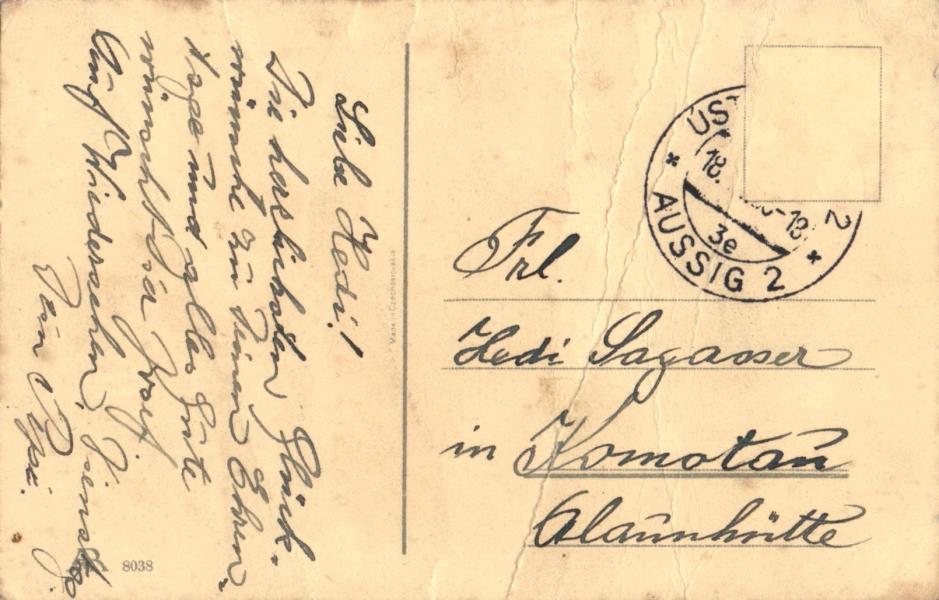 Liebe Hedi!
Die herzlichsten Glück-
wünsche zu Deinem Ehren-
tage und alles Gute
wünscht Dir Josef
Auf Wiedersehen
Dein
Made in Czechoslovakia
8038
ÚST 2
18.
-18
3e
* AUSSIG 2 *
Frl.
Hedi Sagasser
in Komotau
Alaunhütte